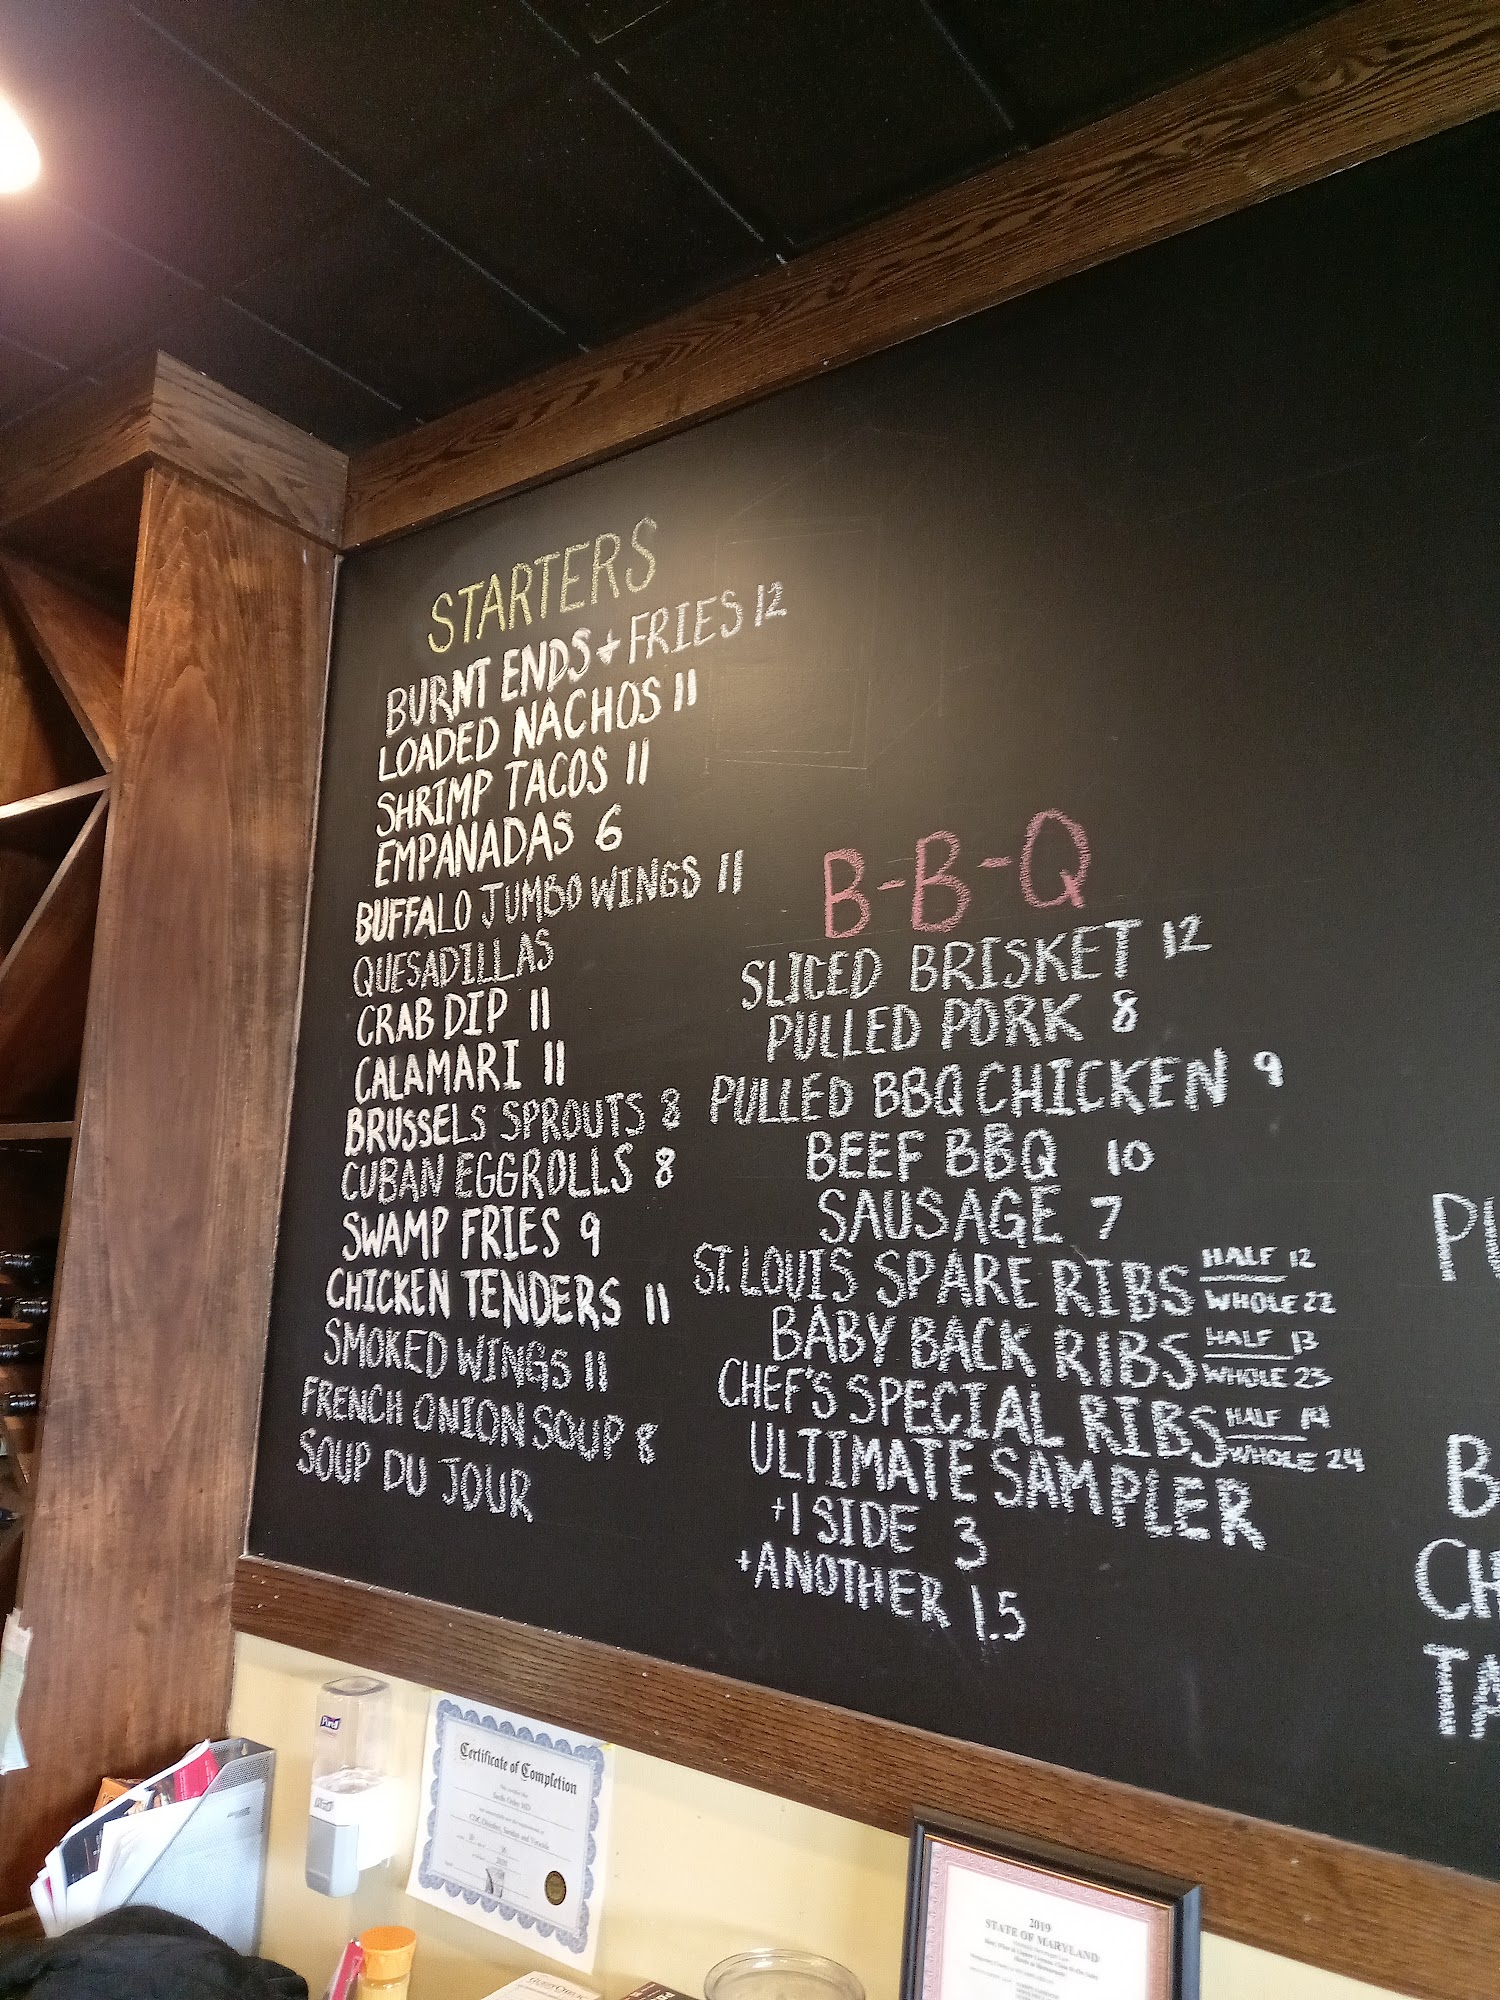 STARTERS
BURNT ENDS + FRIES 12
LOADED NACHOS 11
SHRIMP TACOS 11
EMPANADAS 6
BUFFALO JUMBO WINGS 11
QUESADILLAS
CRAB DIP 11
CALAMARI 11
BRUSSELS SPROUTS 8
CUBAN EGGROLLS 8
SWAMP FRIES 9
CHICKEN TENDERS 11
SMOKED WINGS 11
FRENCH ONION SOUP 8
SOUP DU JOUR
B-B-Q
SLICED BRISKET 12
PULLED PORK 8
PULLED BBQ CHICKEN 9
BEEF BBQ 10
SAUSAGE 7
ST. LOUIS SPARE RIBS HALF 12
WHOLE 22
BABY BACK RIBS HALF 13
WHOLE 23
CHEF'S SPECIAL RIBS HALF 14
WHOLE 24
ULTIMATE SAMPLER
+1 SIDE 3
+ANOTHER 1.5
PU
B
CH
TA
Purell
Certificate of Completion
2019
STATE OF MARYLAND